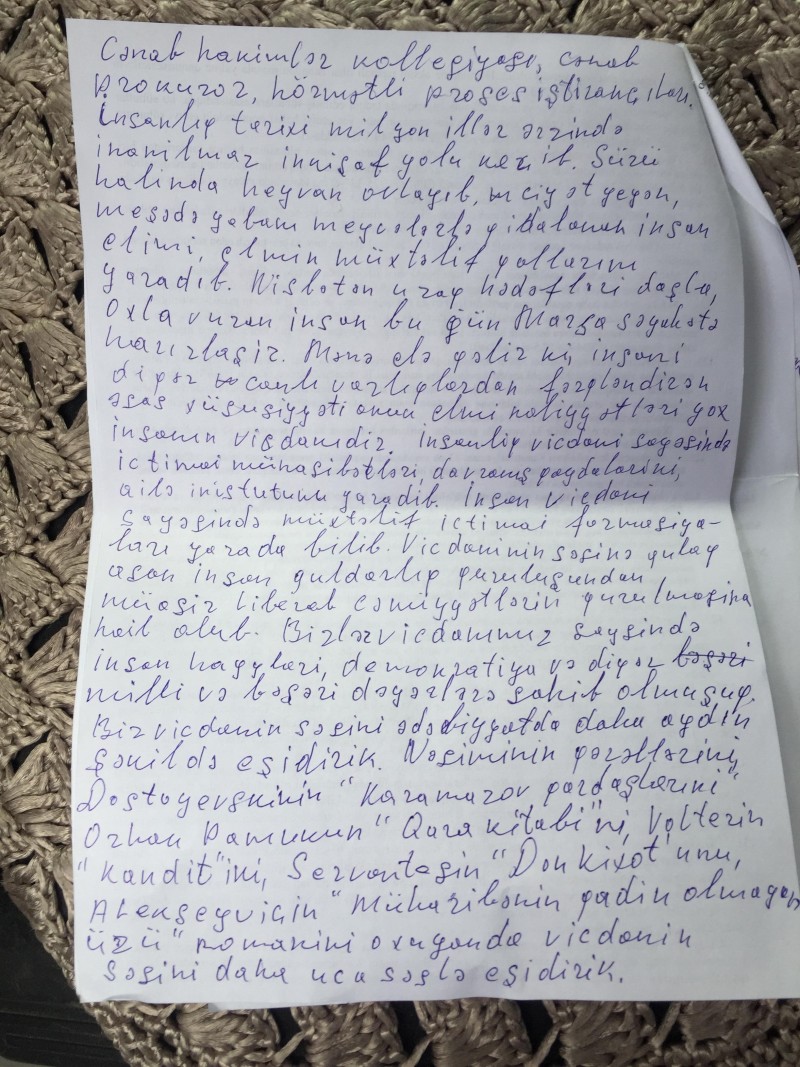 Cənab hakimlər kollegiyası, cənab
prokuror, hörmətli proses iştirakçıları.
İnsanlıq tarixi milyon illər ərzində
inanılmaz inkişaf yolu keçib. Sürü
halında heyvan ovlayıb, çiy ət yeyən,
meşədə yabanı meyvələrlə qidalanan insan
elimi, elmin müxtəlif qollarını
yaradıb. Nisbətən uzaq hədəfləri daşla,
oxla vuran insan bu gün Marsa səyahətə
hazırlaşır. Mənə elə gəlir ki, insanı
digər canlı varlıqlardan fərqləndirən
əsas xüsusiyyəti onun elmi nəliyyətləri yox
insanın vicdanıdır. İnsanlıq vicdanı sayəsində
ictimai münasibətləri, davranış qaydalarını,
ailə inistutunu yaradıb. İnsan vicdanı
sayəsində müxtəlif ictimai formasiya-
ları yarada bilib. Vicdanının səsinə qulaq
asan insan quldarlıq quruluşundan
müasir liberal cəmiyyətlərin qurulmasına
nail olub. Bizlər vicdanımız saysində
insan haqqları, demokratiya və digər bəşəri
milli və bəşəri dəyərlərə sahib olmuşuq.
Biz vicdanın səsini ədəbiyyatda daha aydın
şəkildə eşidirik. Nəsiminin qəzəllərini,
Dostoyevskinin "Karamazov qardaşlarını"
Orhan Pamukun "Qara kitabı"nı, Volterin
"Kandit"ini, Servantesin "Don Kixot"unu,
Alekseyviçin "Müharibənin qadın olmayan
üzü" romanını oxuyanda vicdanın
səsini daha uca səslə eşidirik.